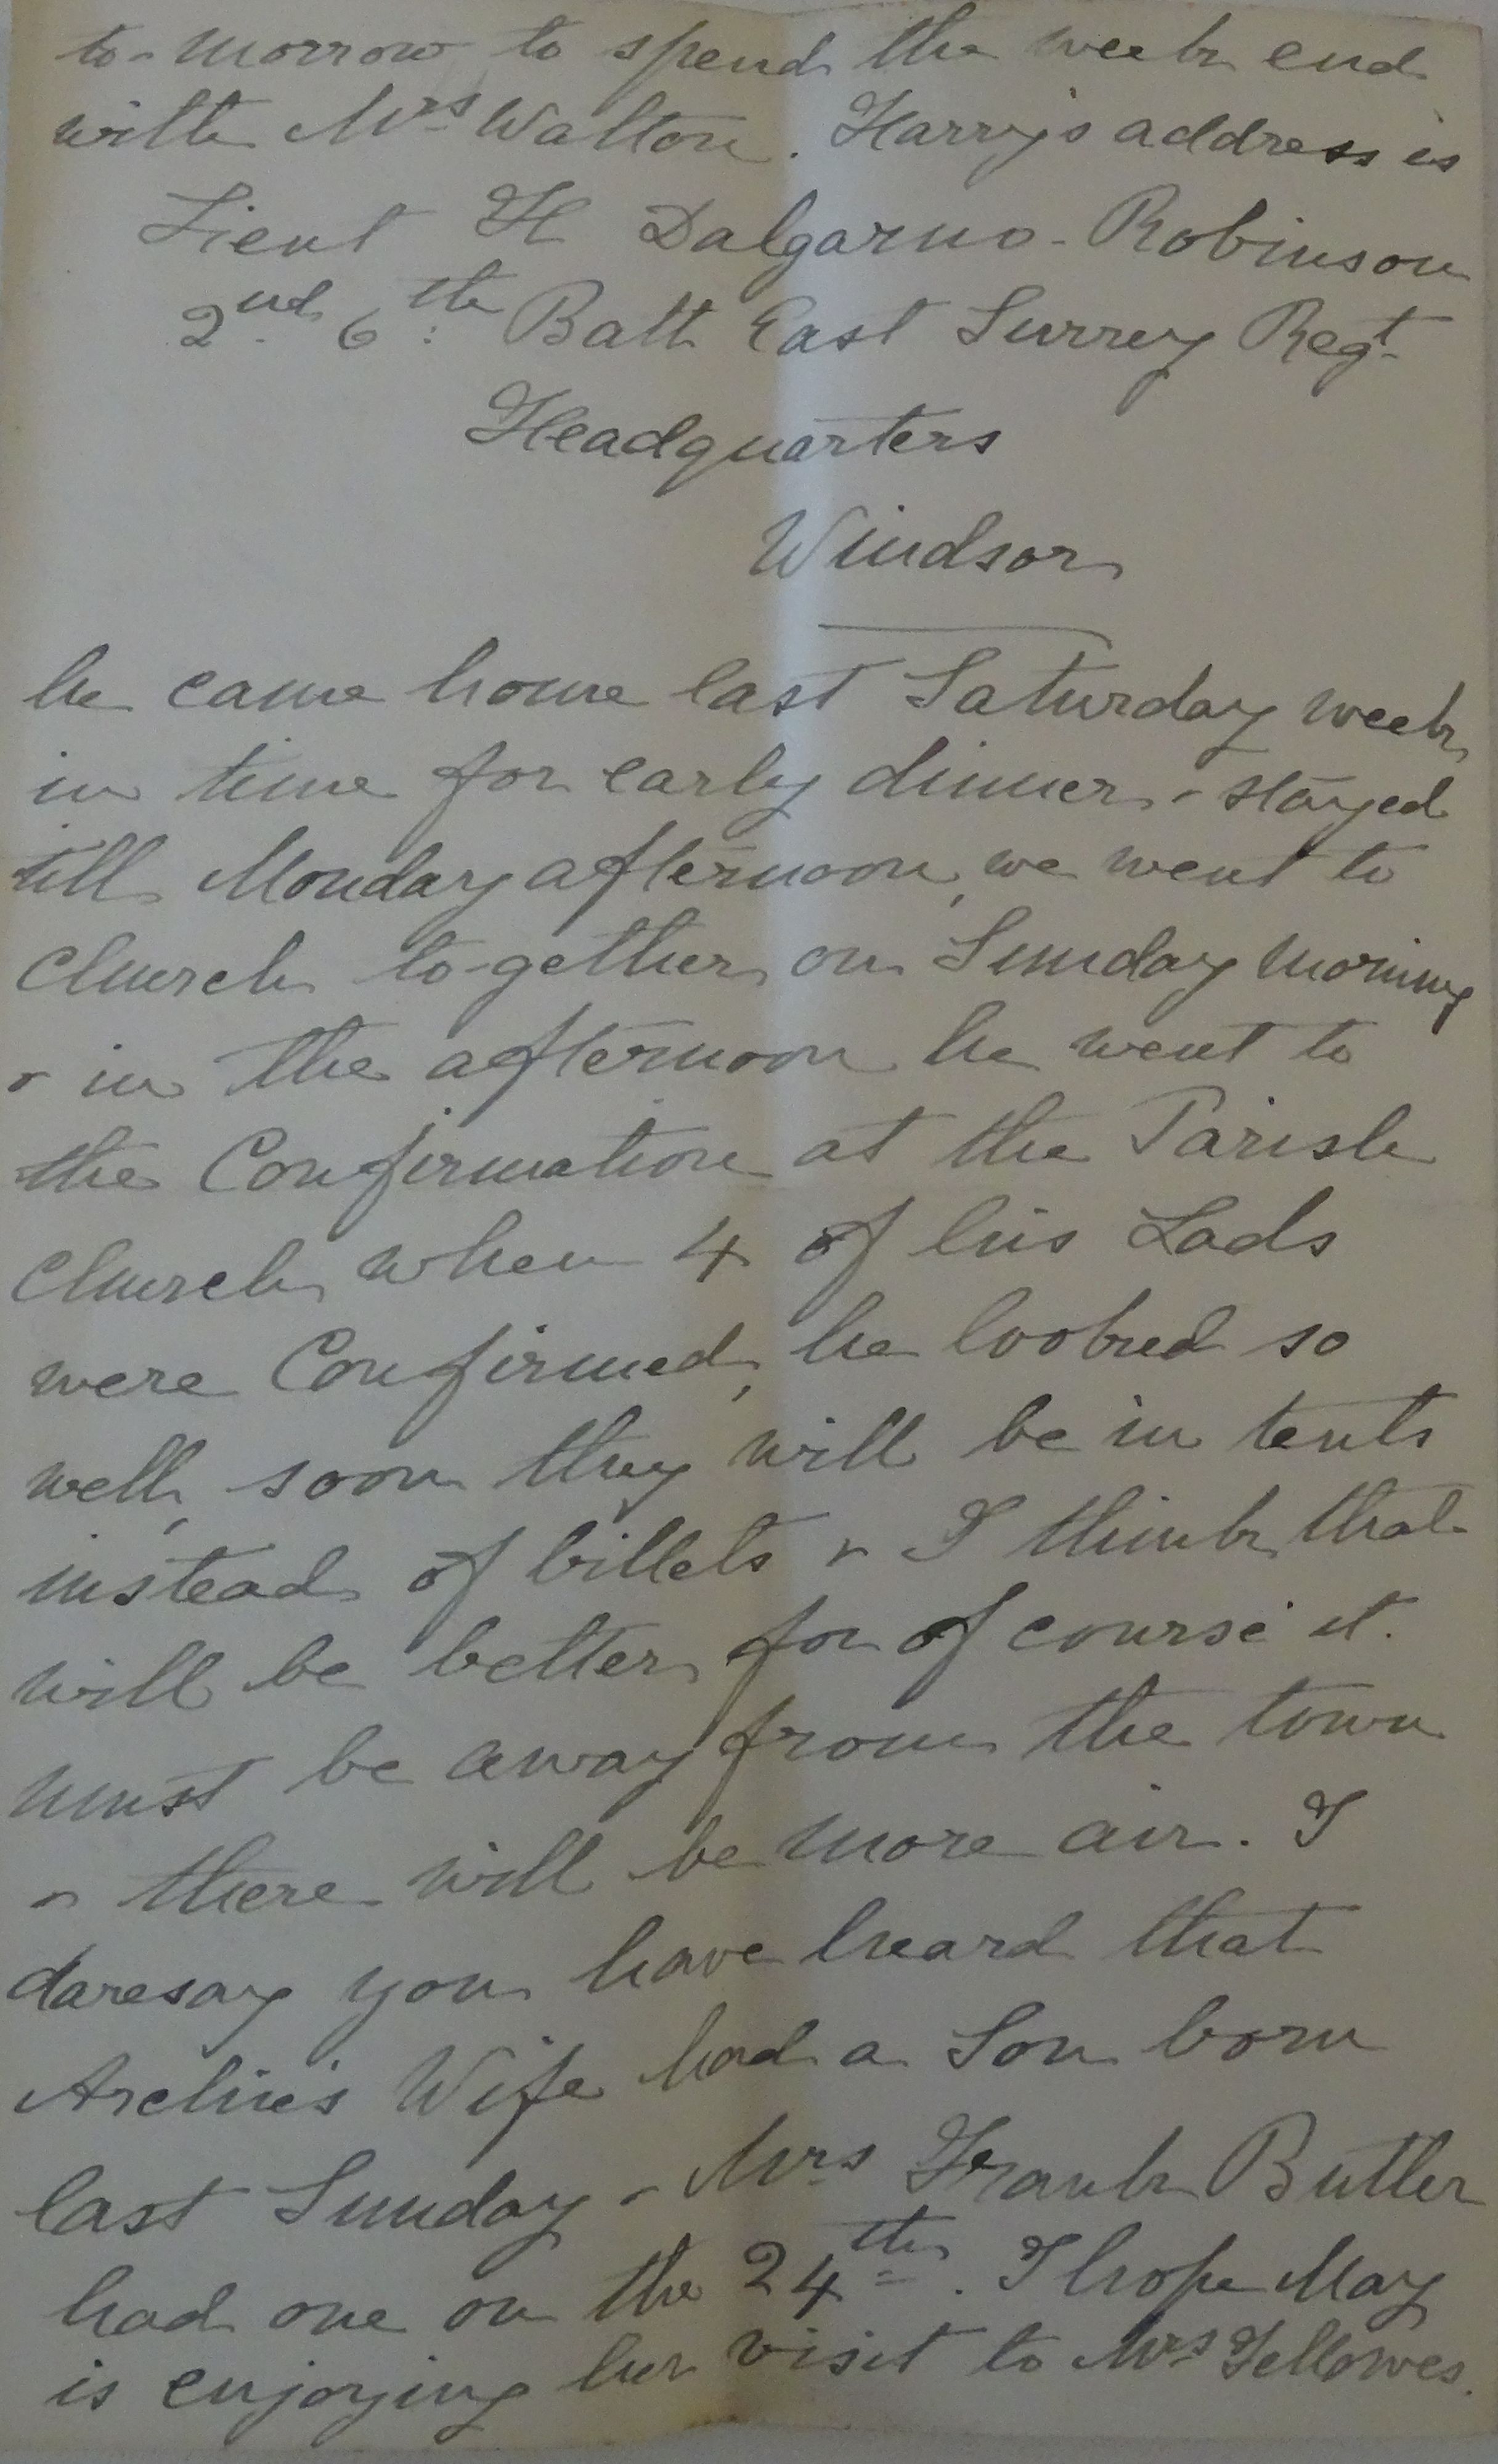 to-morrow to spend the week end
with Mrs Walton. Harry's address is
Lieut H Dalgarno-Robinson
2nd 6th Batt East Surrey Regt
Headquarters
Windsor
he came home last Saturday week
in time for early dinner & stayed
till Monday afternoon, we went to
Church to-gether on Sunday morning
& in the afternoon he went to
the Confirmation at the Parish
Church when 4 of his Lads
were Confirmed, he looked so
well, soon they will be in tents
instead of billets & I think that
will be better for of course it
must be away from the town
& there will be more air. I
daresay you have heard that
Archie's Wife had a Son born
last Sunday & Mrs Frank Butler
had one on the 24th. I hope May
is enjoying her visit to Mrs Fellowes.